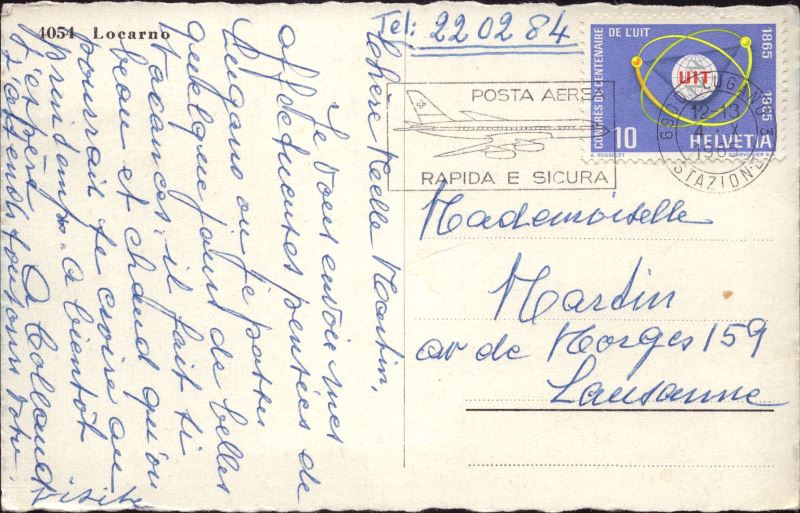 4054 Locarno
Tel: 22 02 84
Chère Melle Martin,
Je vous envoie mes
affectueuses pensées de
Lugano ou je passe
quelque jours de belles
vacances; il fait si
beau et chaud qu'on
pourrait se croire au
printemps. A bientôt
j'espère A Colland
j'attends toujours votre
visite
CONGRÈS DU CENTENAIRE DE L'UIT
1865
1965
UIT
10 HELVETIA
COURVOISIER
POSTA AEREA
RAPIDA E SICURA
LUGANO
12-13
STAZIONE
Mademoiselle
Martin
av de Morges 159
Lausanne